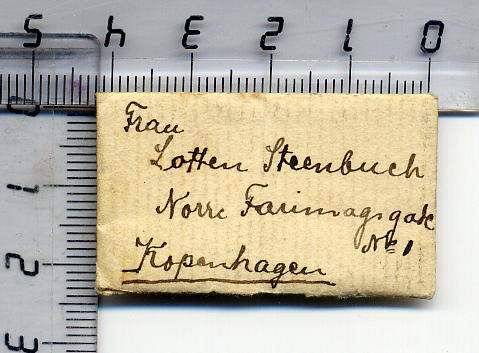 5 4 3 2 1 0
0
1
2
3
Frau
Lotten Steenbuch
Norre Farimagsgade
No 1
Kopenhagen